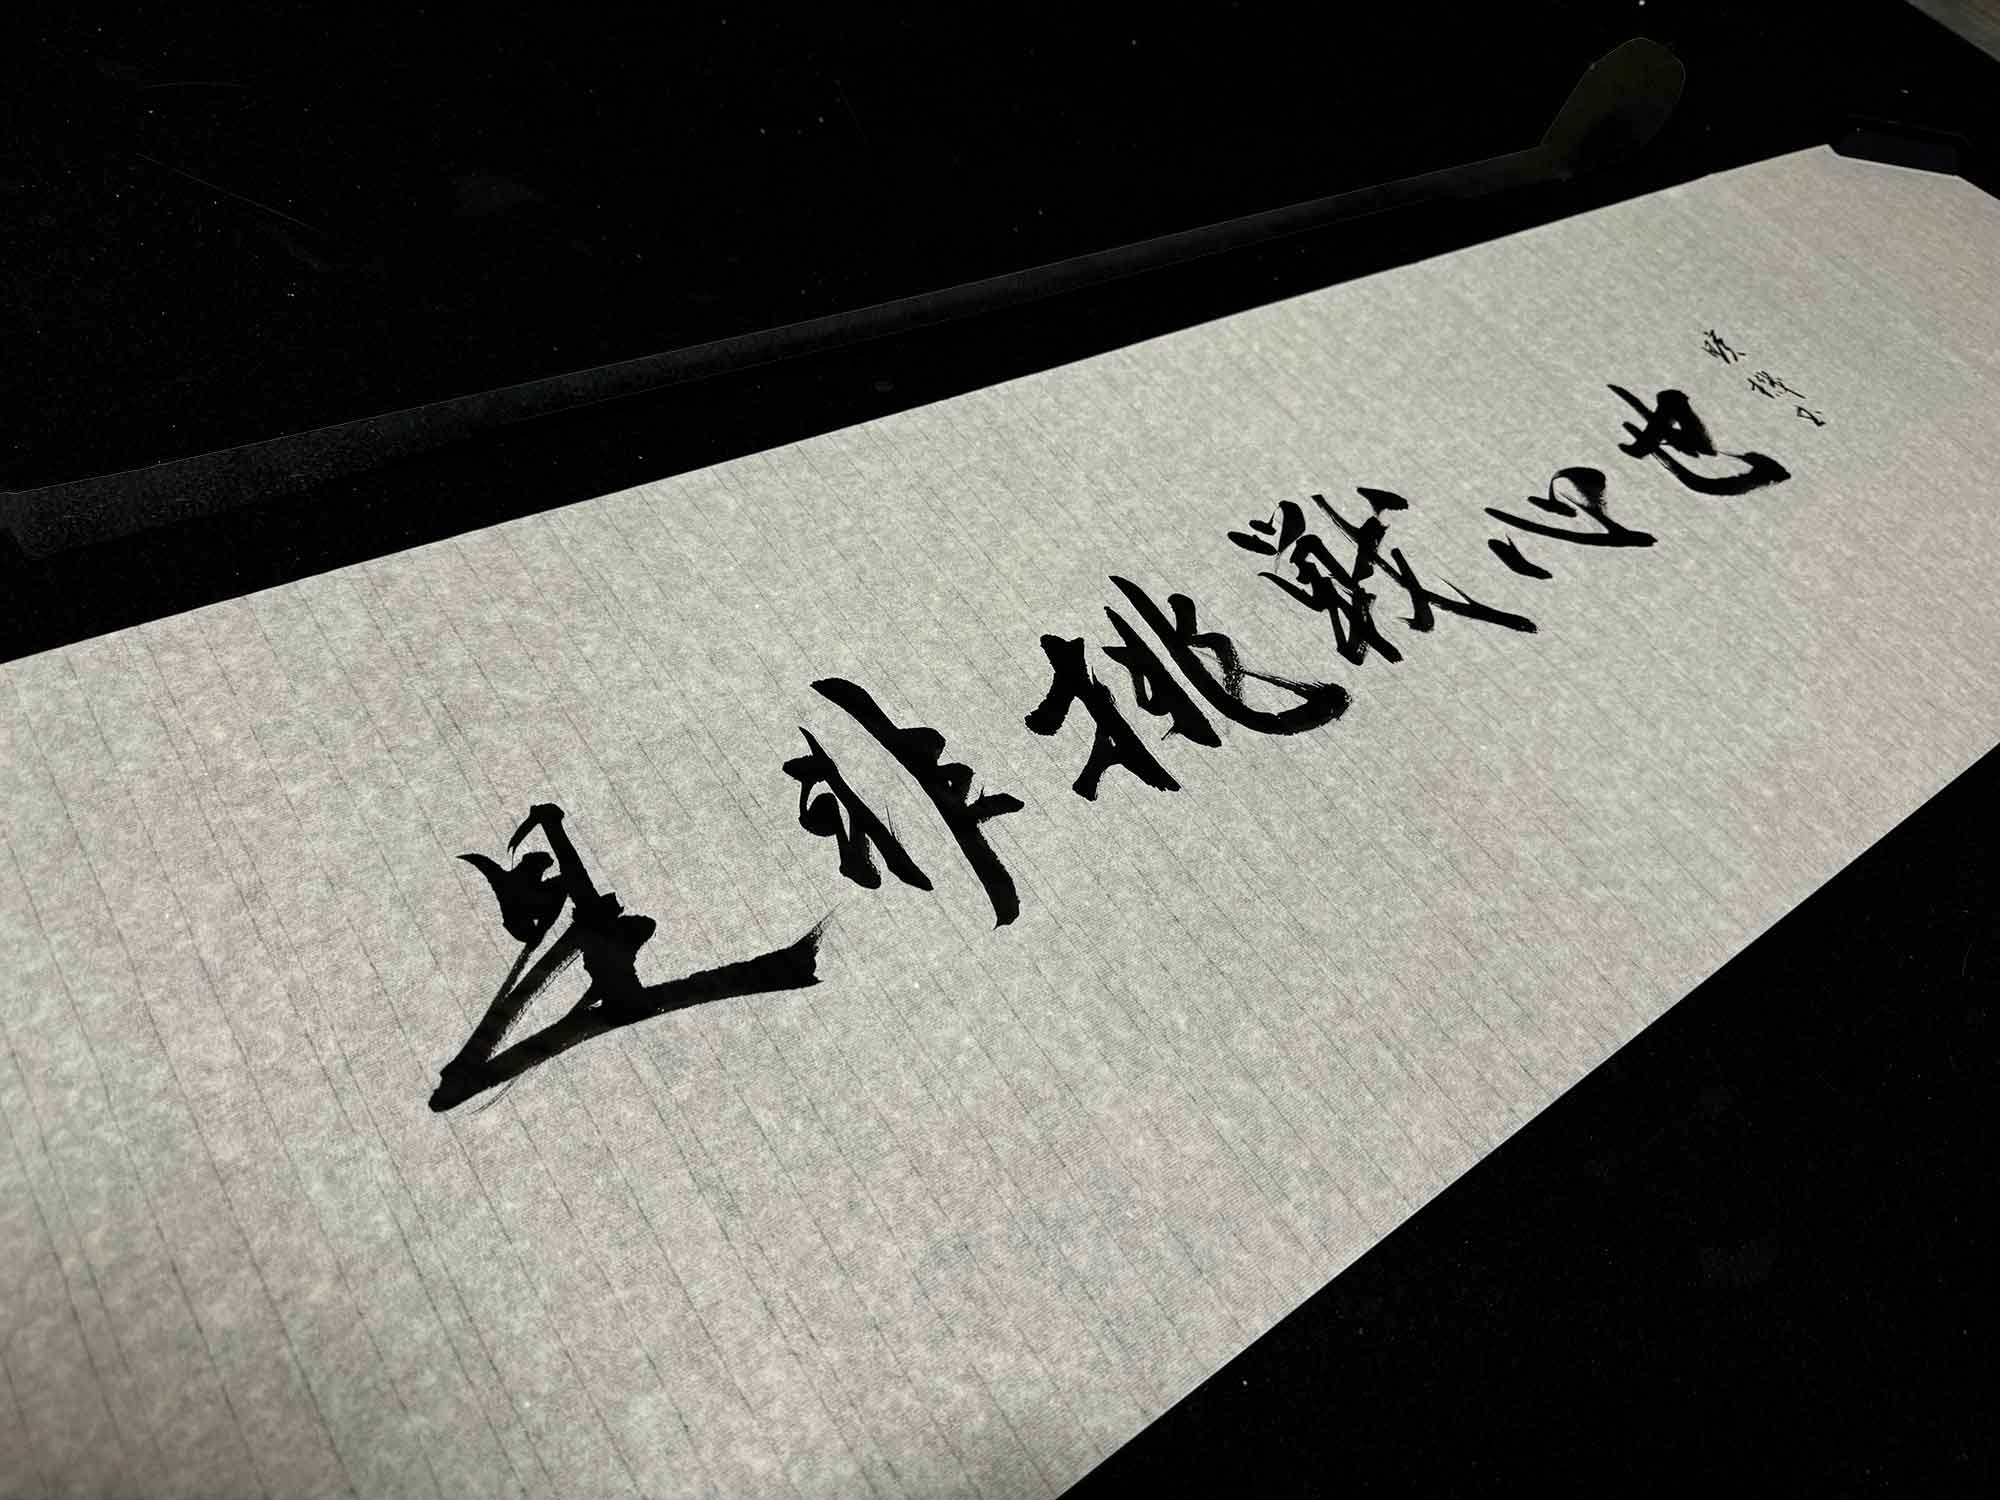 是非挑戦心也